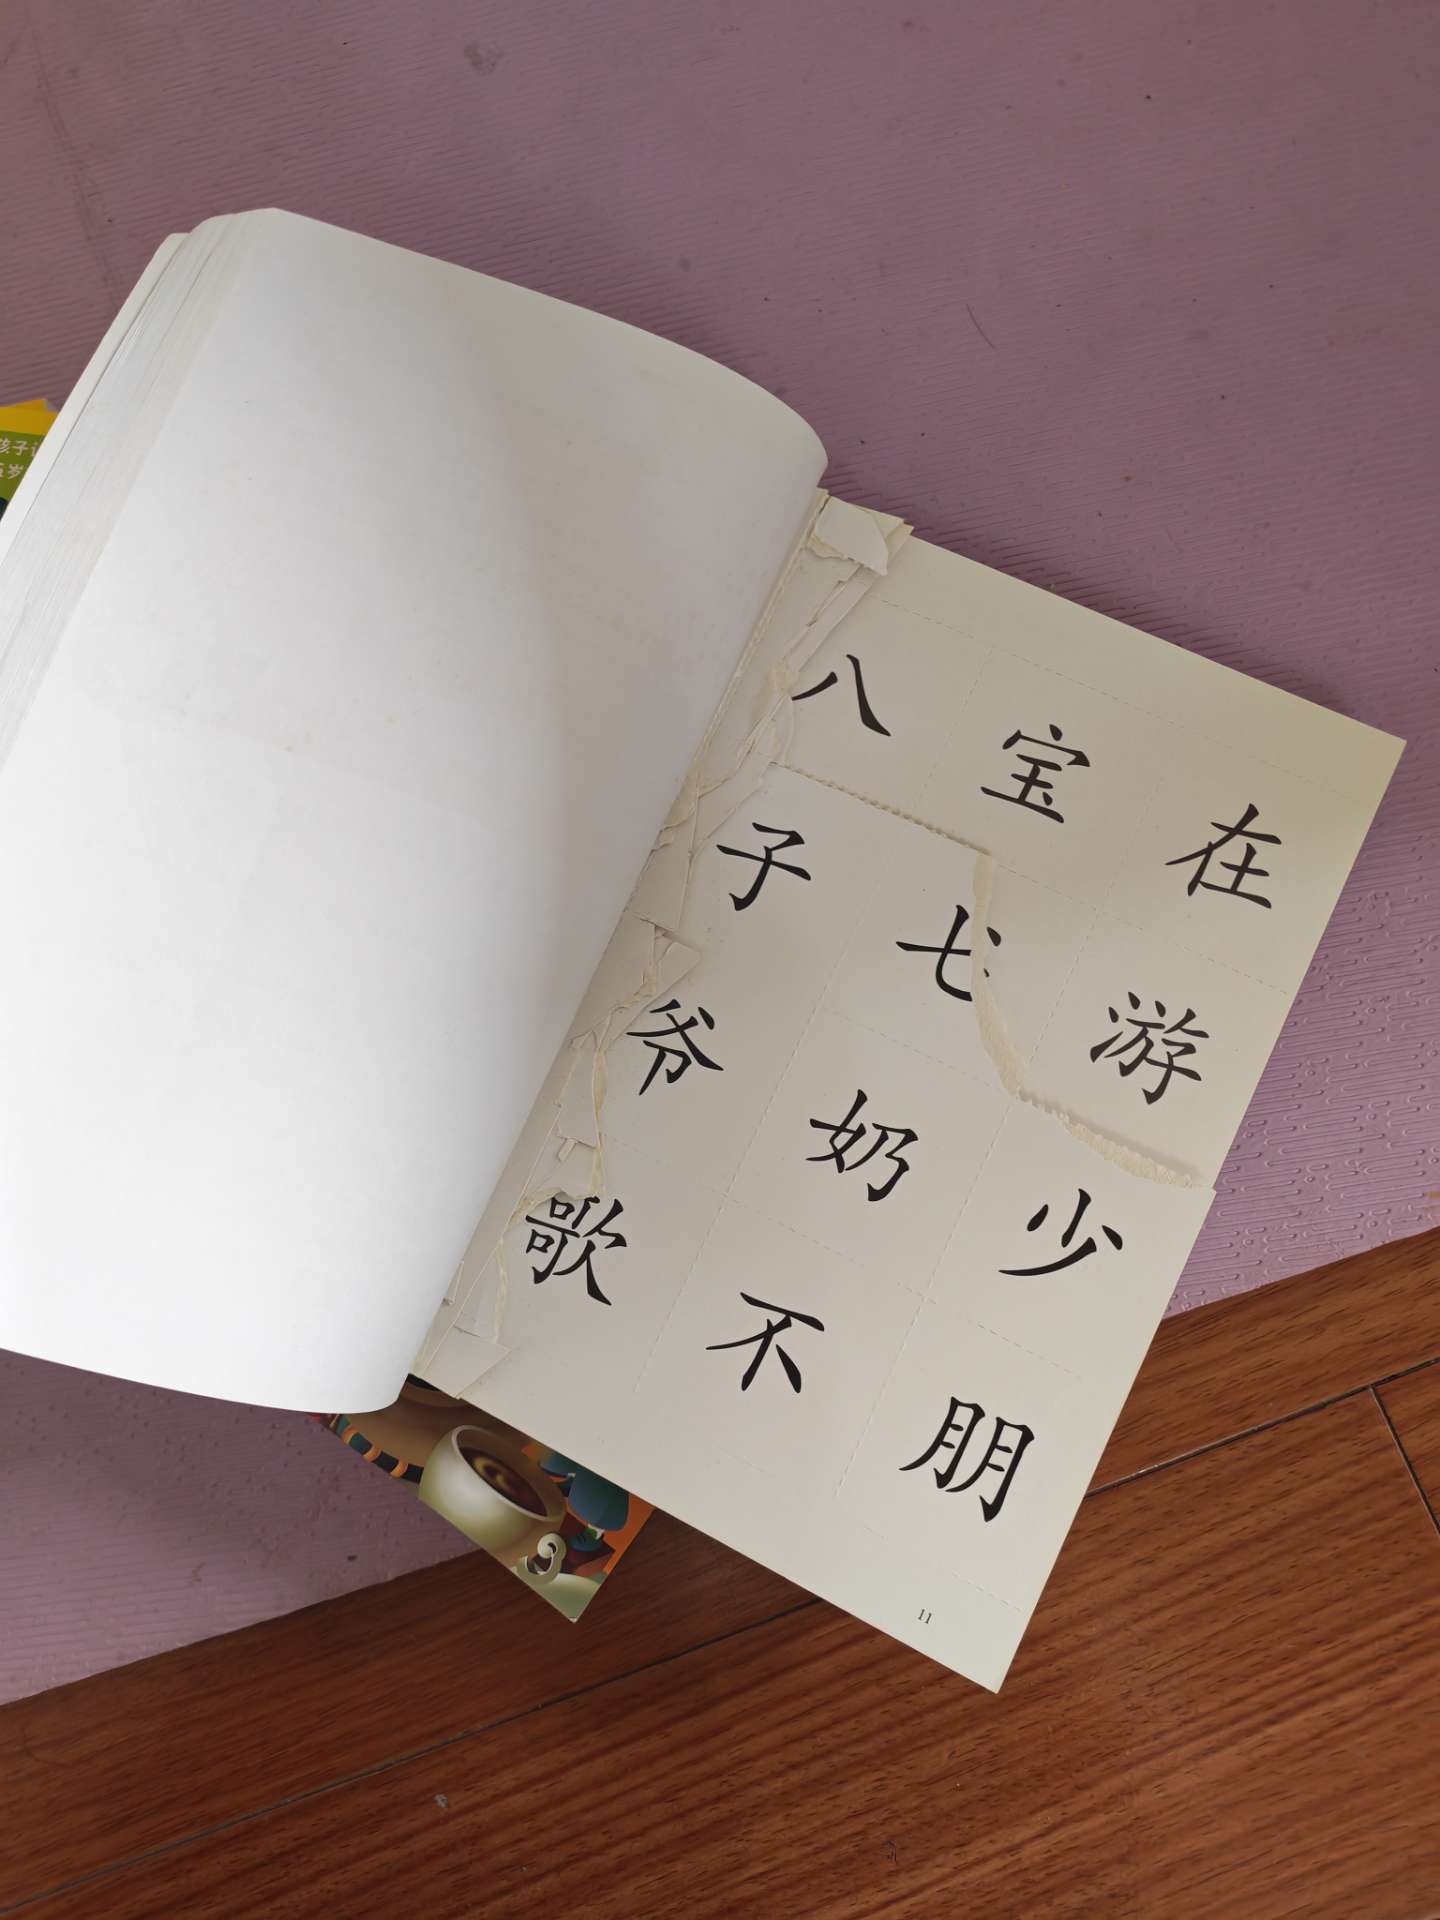 八 宝 在
子 七 游
爷 奶 少
歌 不 朋
11
孩子
岁
3